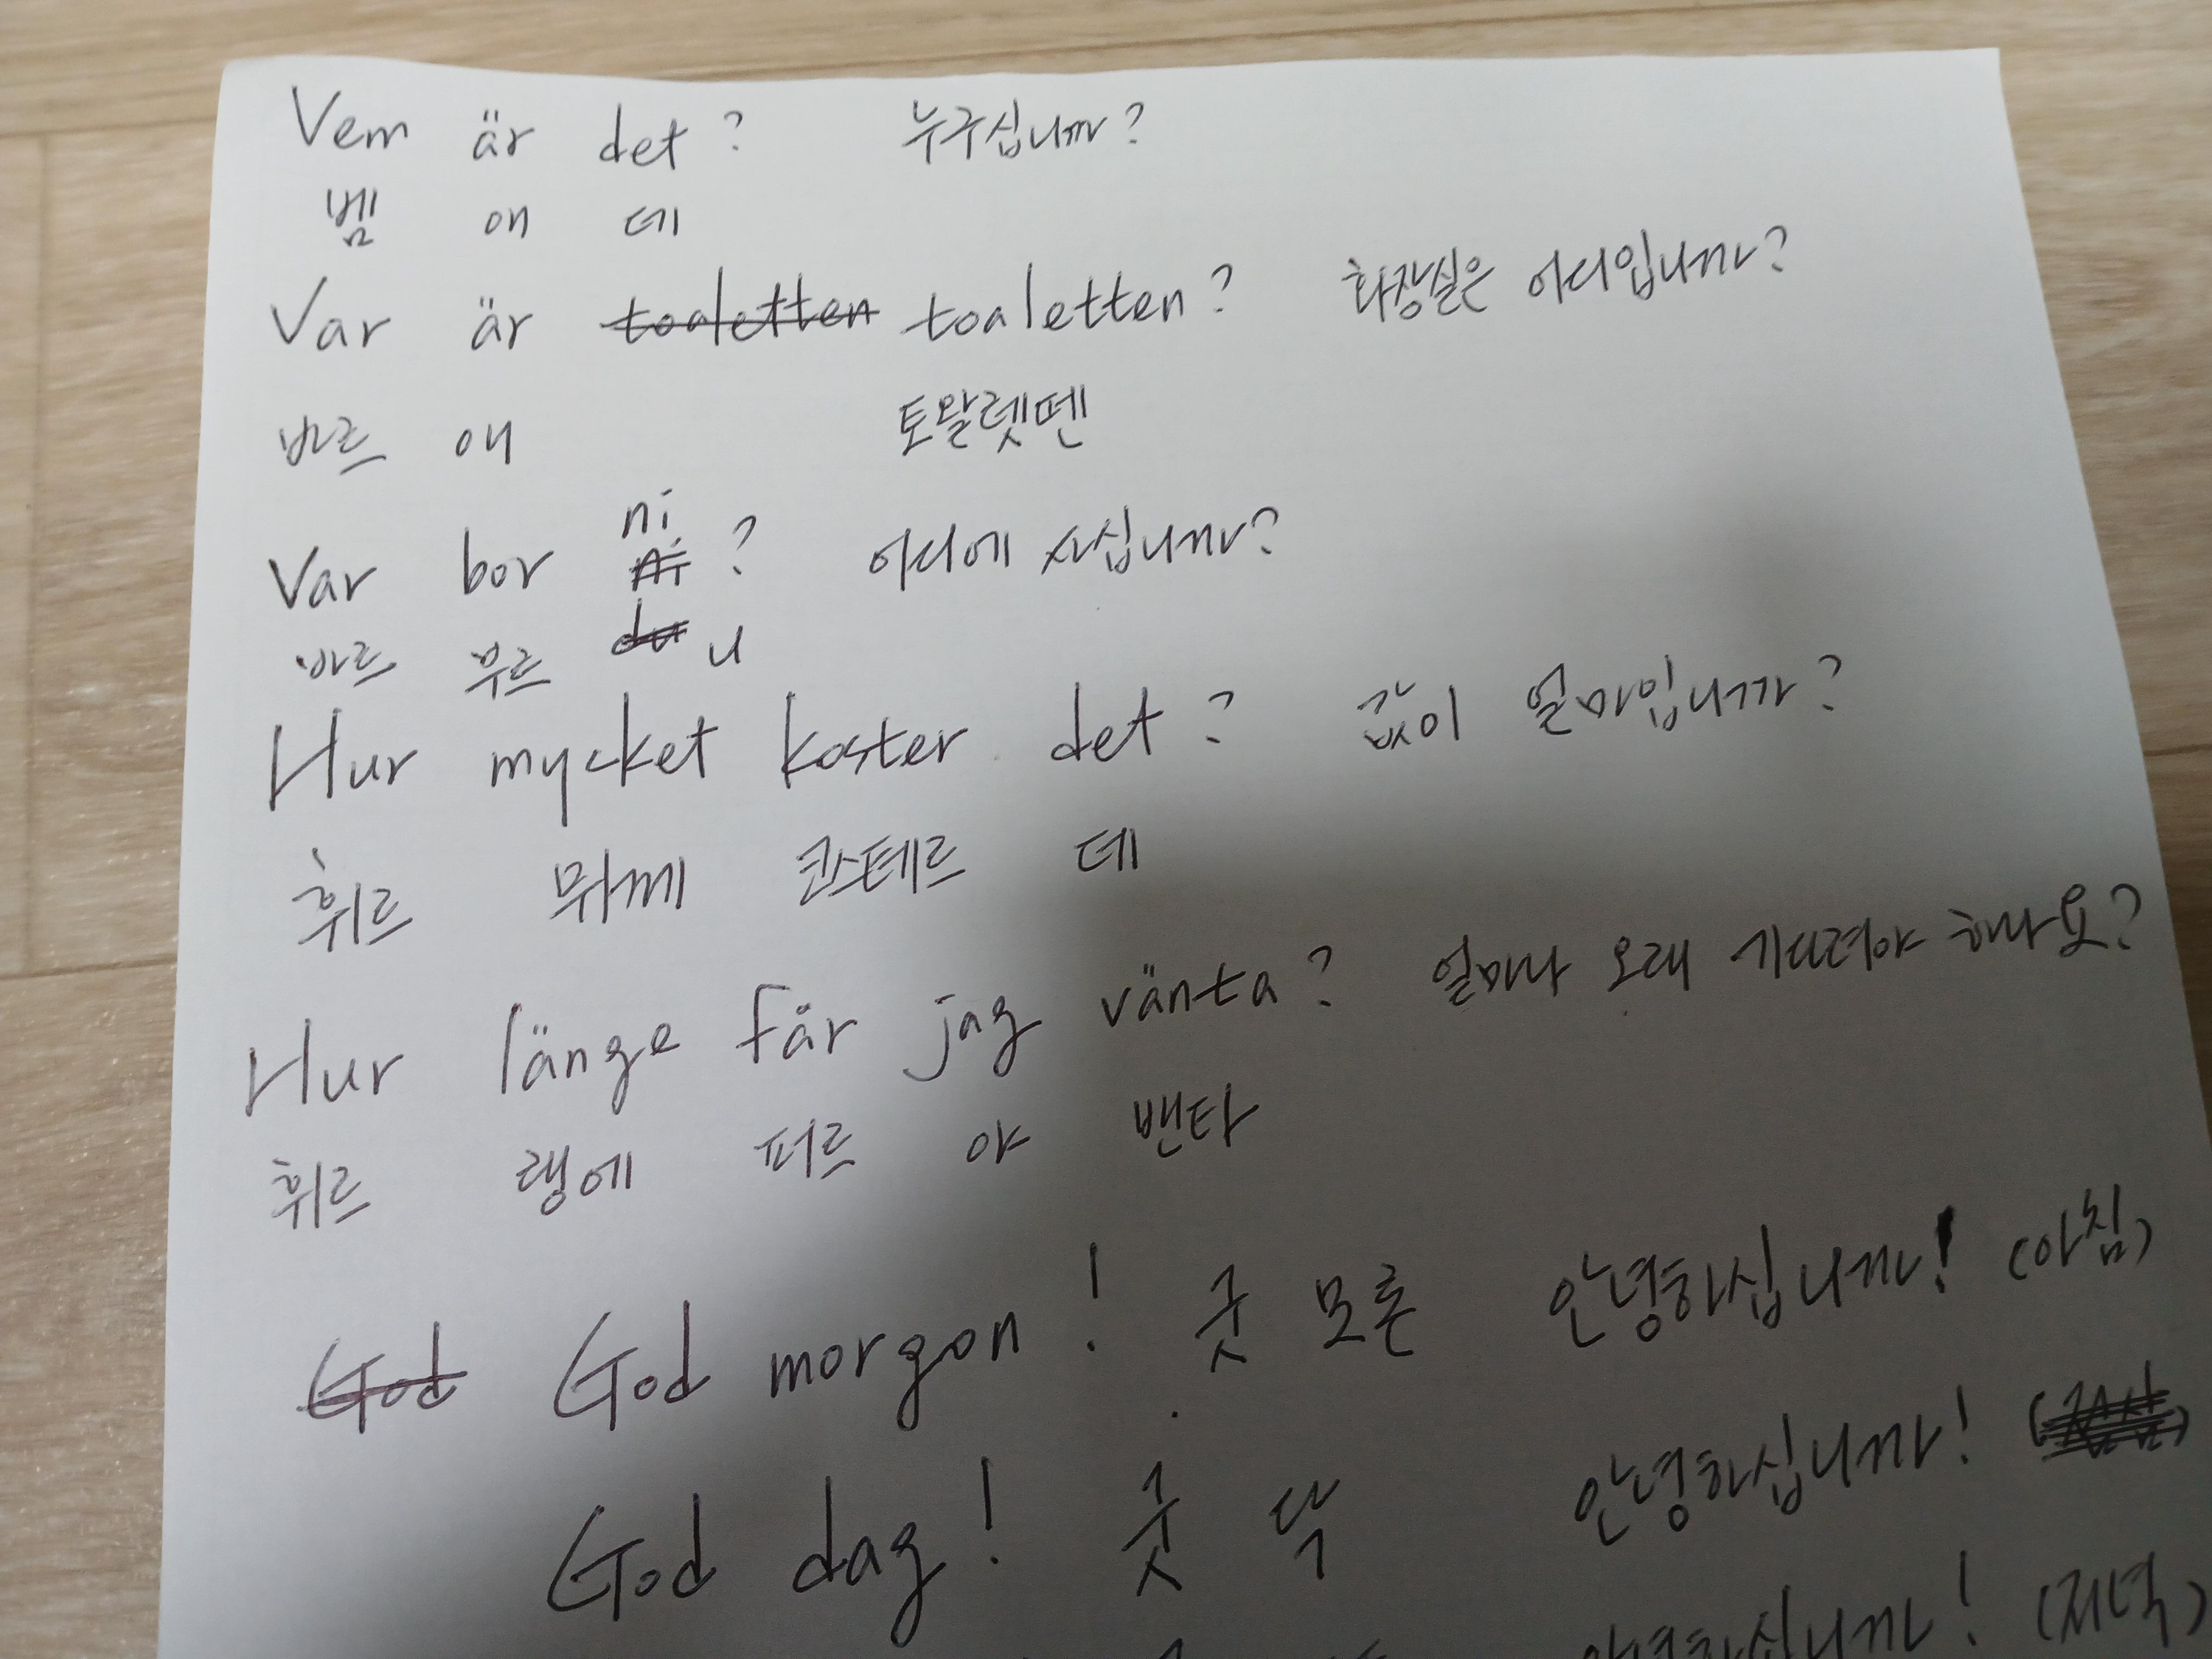 Vem är det? 누구십니까?
벰 애 데
Var är toaletten toaletten? 화장실은 어디입니까?
바르 애 토알렛뗀
Var bor ni ? 어디에 사십니까?
바르 부르 du 니
Hur mycket koster det? 값이 얼마입니까?
휘르 뮈께 콰스테르 데
Hur länge får jag vänta? 얼마나 오래 기다려야 하나요?
휘르 랭에 퍼르 야 밴타
God God morgon! 굿 모른 안녕하십니까! (아침)
God dag! 굿 닥 안녕하십니까!
안녕하십니까! (저녁)